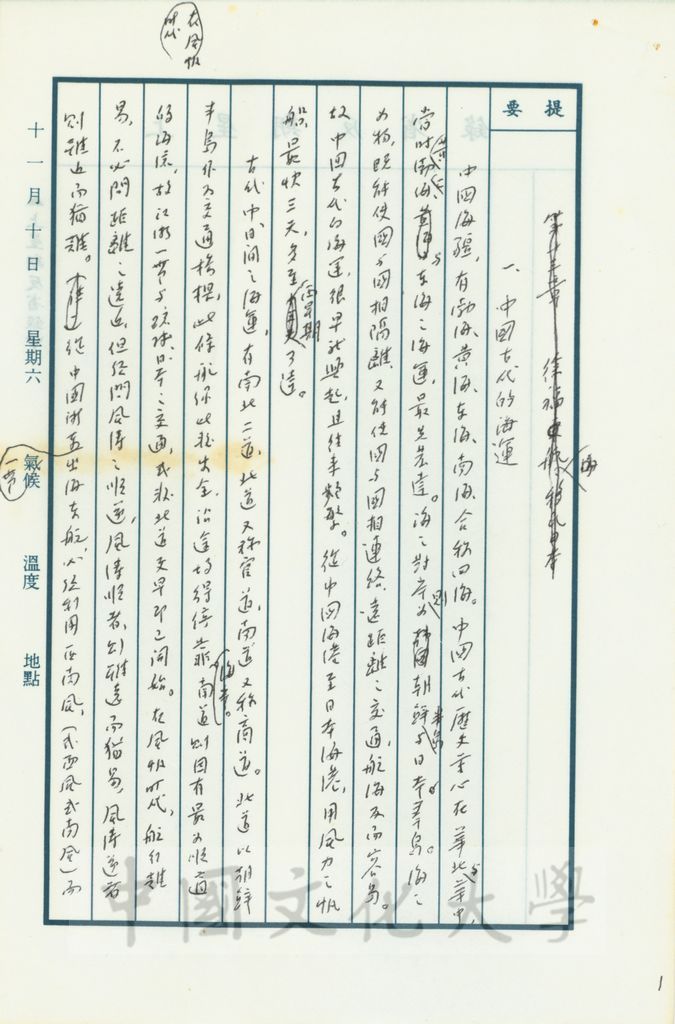 提要
第十三章 徐福東航移民日本
一、中國古代的海運
中國海疆,有渤海、黃海、東海、南海,合稱四海。中國古代歷史重心在華北與華中,
當時渤海、黃海與東海之海運,最先發達。海之對岸則為韓國朝鮮半島與日本羣島。海之
為物,既能使國與國相隔離,又能使國與國相連絡,遠距離之交通,航海反而容易。
故中國古代的海運,很早就興起,且往來頻繁。從中國海港至日本海港,用風力之帆
船,最快三天,多至兩星期可達。
古代中日間之海運,有南北二道,北道又稱官道,南道又稱商道。北道以朝鮮
半島作為交通橋樑,此條航線比較安全,沿途均得停靠海岸。南道則因有最為順適
的海流,故江浙一帶與琉球、日本之交通,或較北道更早即已開始。在風帆時代,航行難
易,不必問距離之遠近,但須問風濤之順逆,風濤順者,則雖遠而猶易,風濤逆者
則雖近而猶難。從中國浙蘇一帶出海東航,必須利用西南風,(或西風或南風)而
在風帆時代
海
一帶
十一月十日 星期六 氣候 溫度 地點
中國文化大學
1